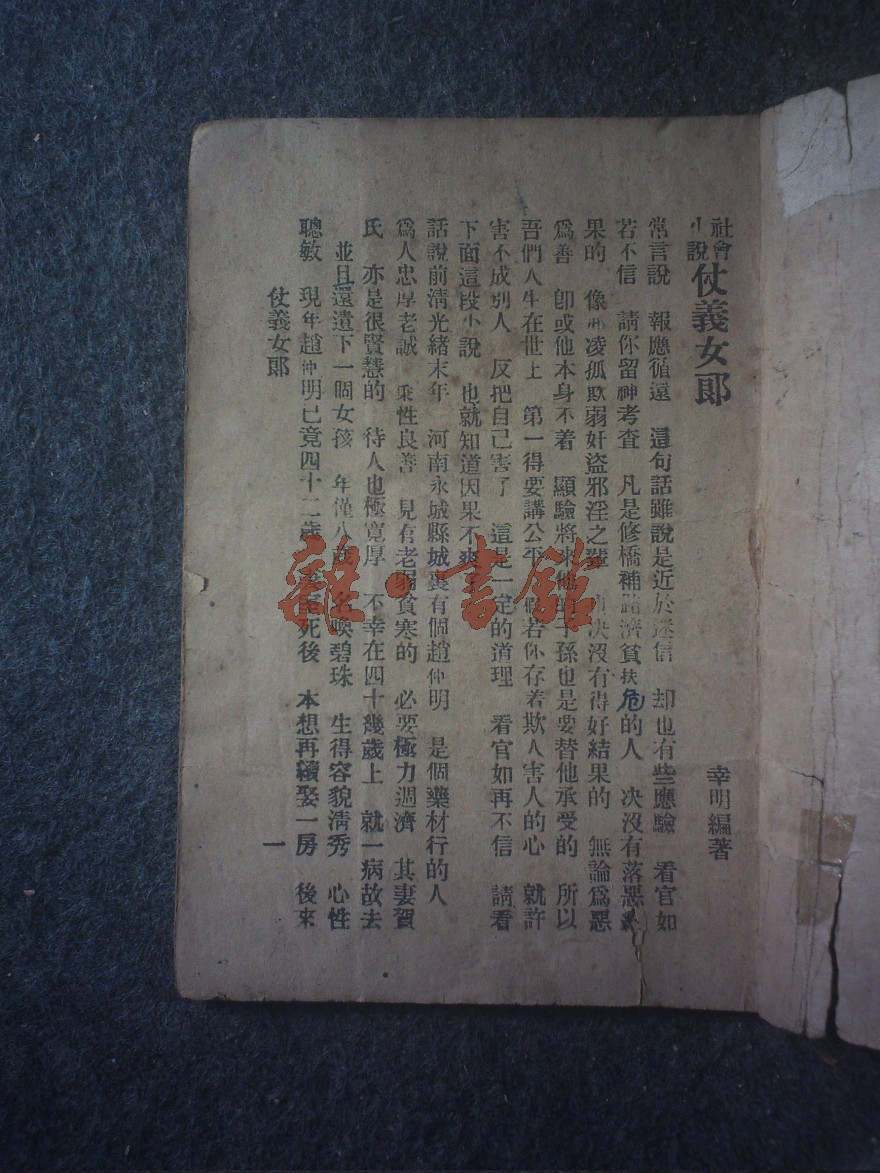 社會小說 仗義女郎
幸明編著
常言說 報應循遠 這句話雖說是近於迷信 却也有些應驗 看官如
若不信 請你留神考查 凡是修橋補路濟貧扶危的人 决沒有落惡
果的 像 凌孤欺弱奸盜邪淫之輩 决沒有得好結果的 無論爲惡
爲善 卽或他本身不着 顯驗將來 子孫也是要替他承受的 所以
吾們人生在世上 第一得要講公平 若你存着欺人害人的心 就許
害不成別人 反把自己害了 這是一定的道理 看官如再不信 請看
下面這段小說 也就知道因果不爽
話說前清光緒末年 河南永城縣城裏有個趙仲明 是個藥材行的人
爲人忠厚老誠 秉性良善 見有老弱貧寒的 必要極力週濟 其妻賀
氏 亦是很賢慧的 待人也極寬厚 不幸在四十幾歲上 就一病故去
並且還遺下一個女孩 年僅八歲 名喚碧珠 生得容貌清秀 心性
聰敏 現年趙仲明已竟四十二歲 死後 本想再續娶一房 後來
仗義女郎
一
雜·書館